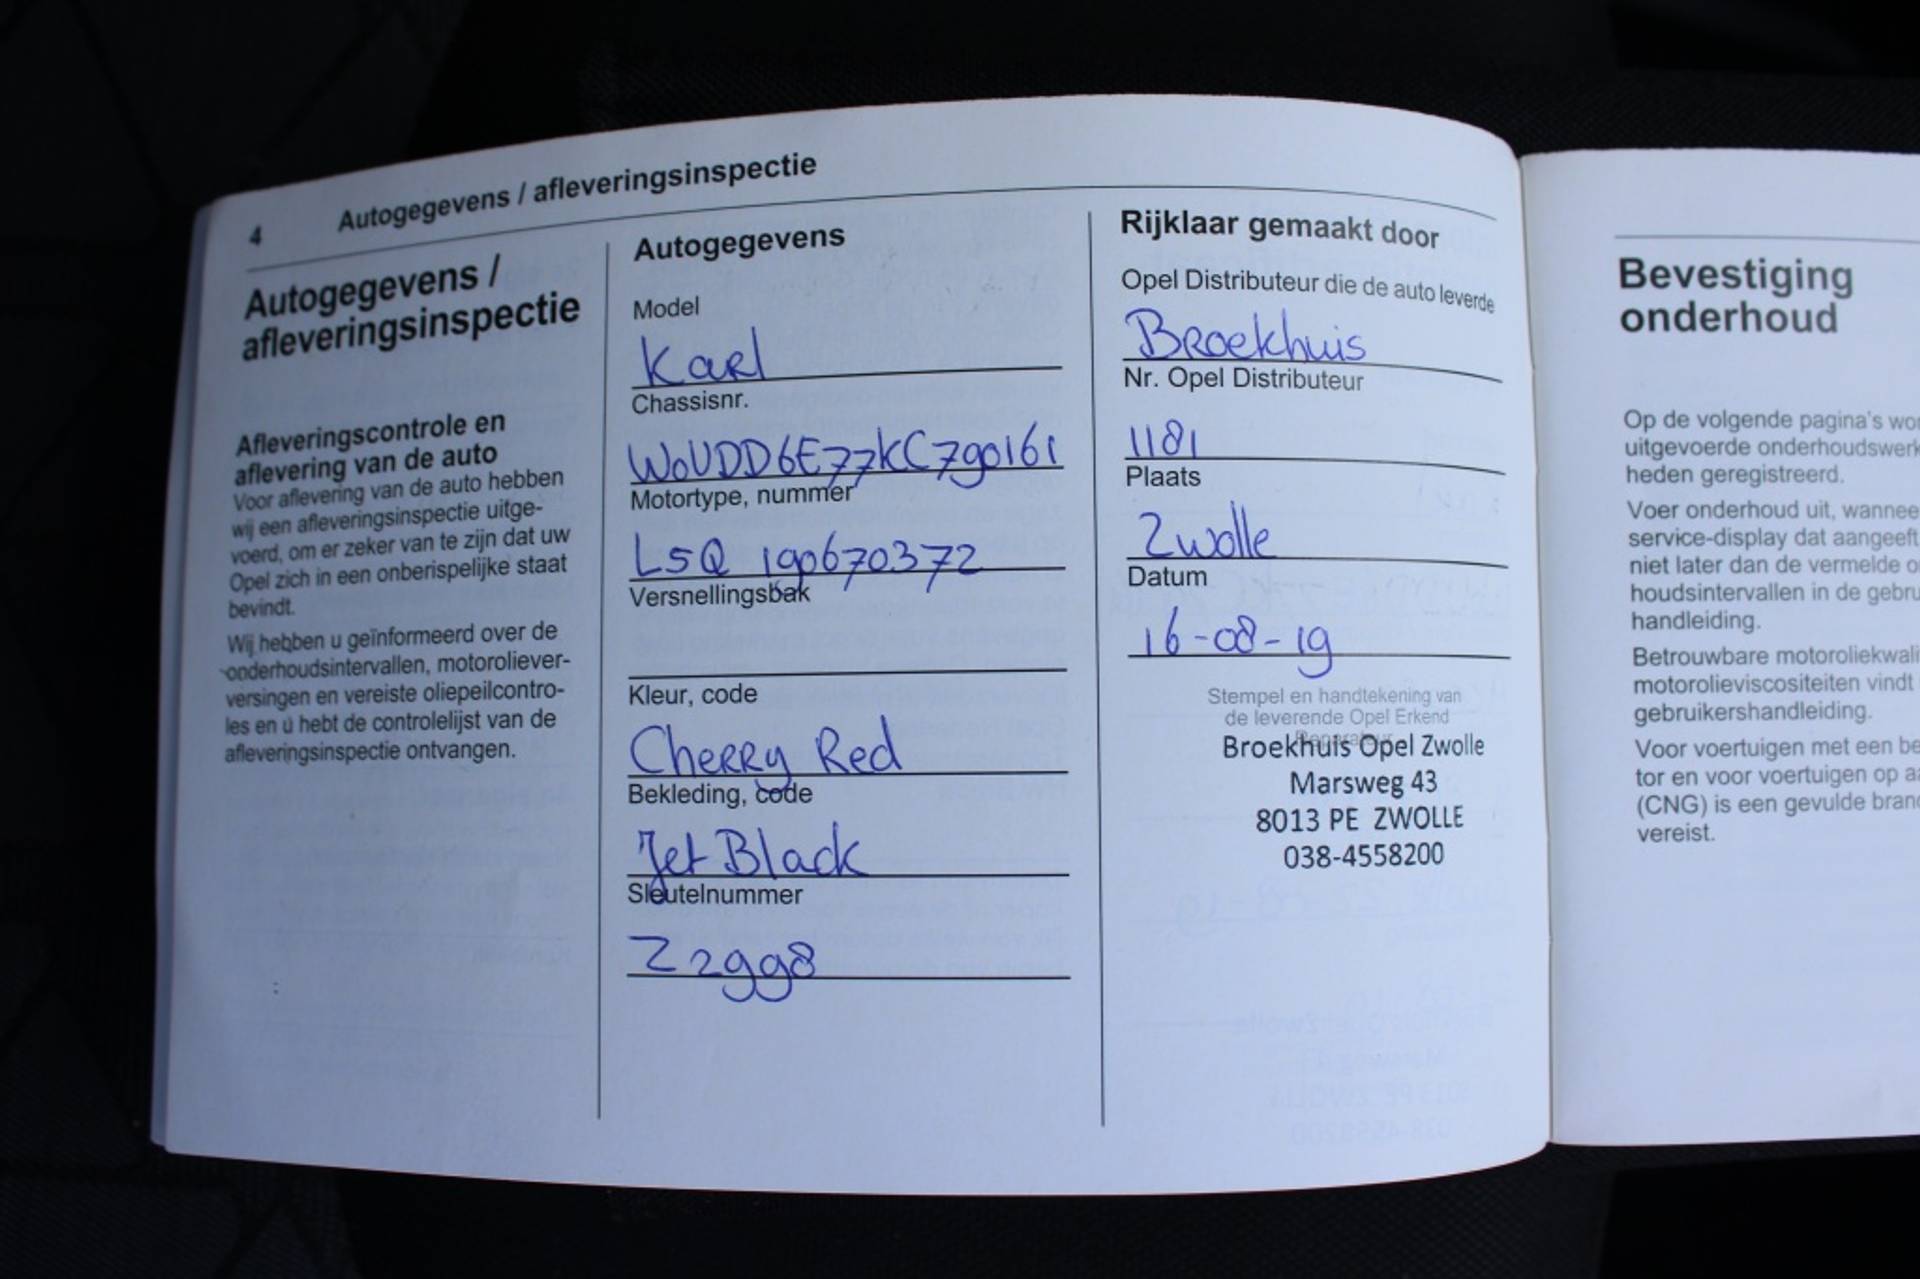 4 Autogegevens / afleveringsinspectie
Autogegevens /
afleveringsinspectie
Afleveringscontrole en
aflevering van de auto
Voor aflevering van de auto hebben
wij een afleveringsinspectie uitge-
voerd, om er zeker van te zijn dat uw
Opel zich in een onberispelijke staat
bevindt.
Wij hebben u geïnformeerd over de
onderhoudsintervallen, motoroliever-
versingen en vereiste oliepeilcontro-
les en u hebt de controlelijst van de
afleveringsinspectie ontvangen.
Autogegevens
Model
Karl
Chassisnr.
W0VDD6E77KC790161
Motortype, nummer
L5Q 190670372
Versnellingsbak
Kleur, code
Cherry Red
Bekleding, code
Jet Black
Sleutelnummer
Z2998
Rijklaar gemaakt door
Opel Distributeur die de auto leverde
Broekhuis
Nr. Opel Distributeur
1181
Plaats
Zwolle
Datum
16-08-19
Stempel en handtekening van
de leverende Opel Erkend
Reparateur
Broekhuis Opel Zwolle
Marsweg 43
8013 PE ZWOLLE
038-4558200
Bevestiging
onderhoud
Op de volgende pagina's wor
uitgevoerde onderhoudswerk
heden geregistreerd.
Voer onderhoud uit, wannee
service-display dat aangeeft
niet later dan de vermelde o
houdsintervallen in de gebru
handleiding.
Betrouwbare motoroliekwali
motorolieviscositeiten vindt
gebruikershandleiding.
Voor voertuigen met een be
tor en voor voertuigen op aa
(CNG) is een gevulde brand
vereist.